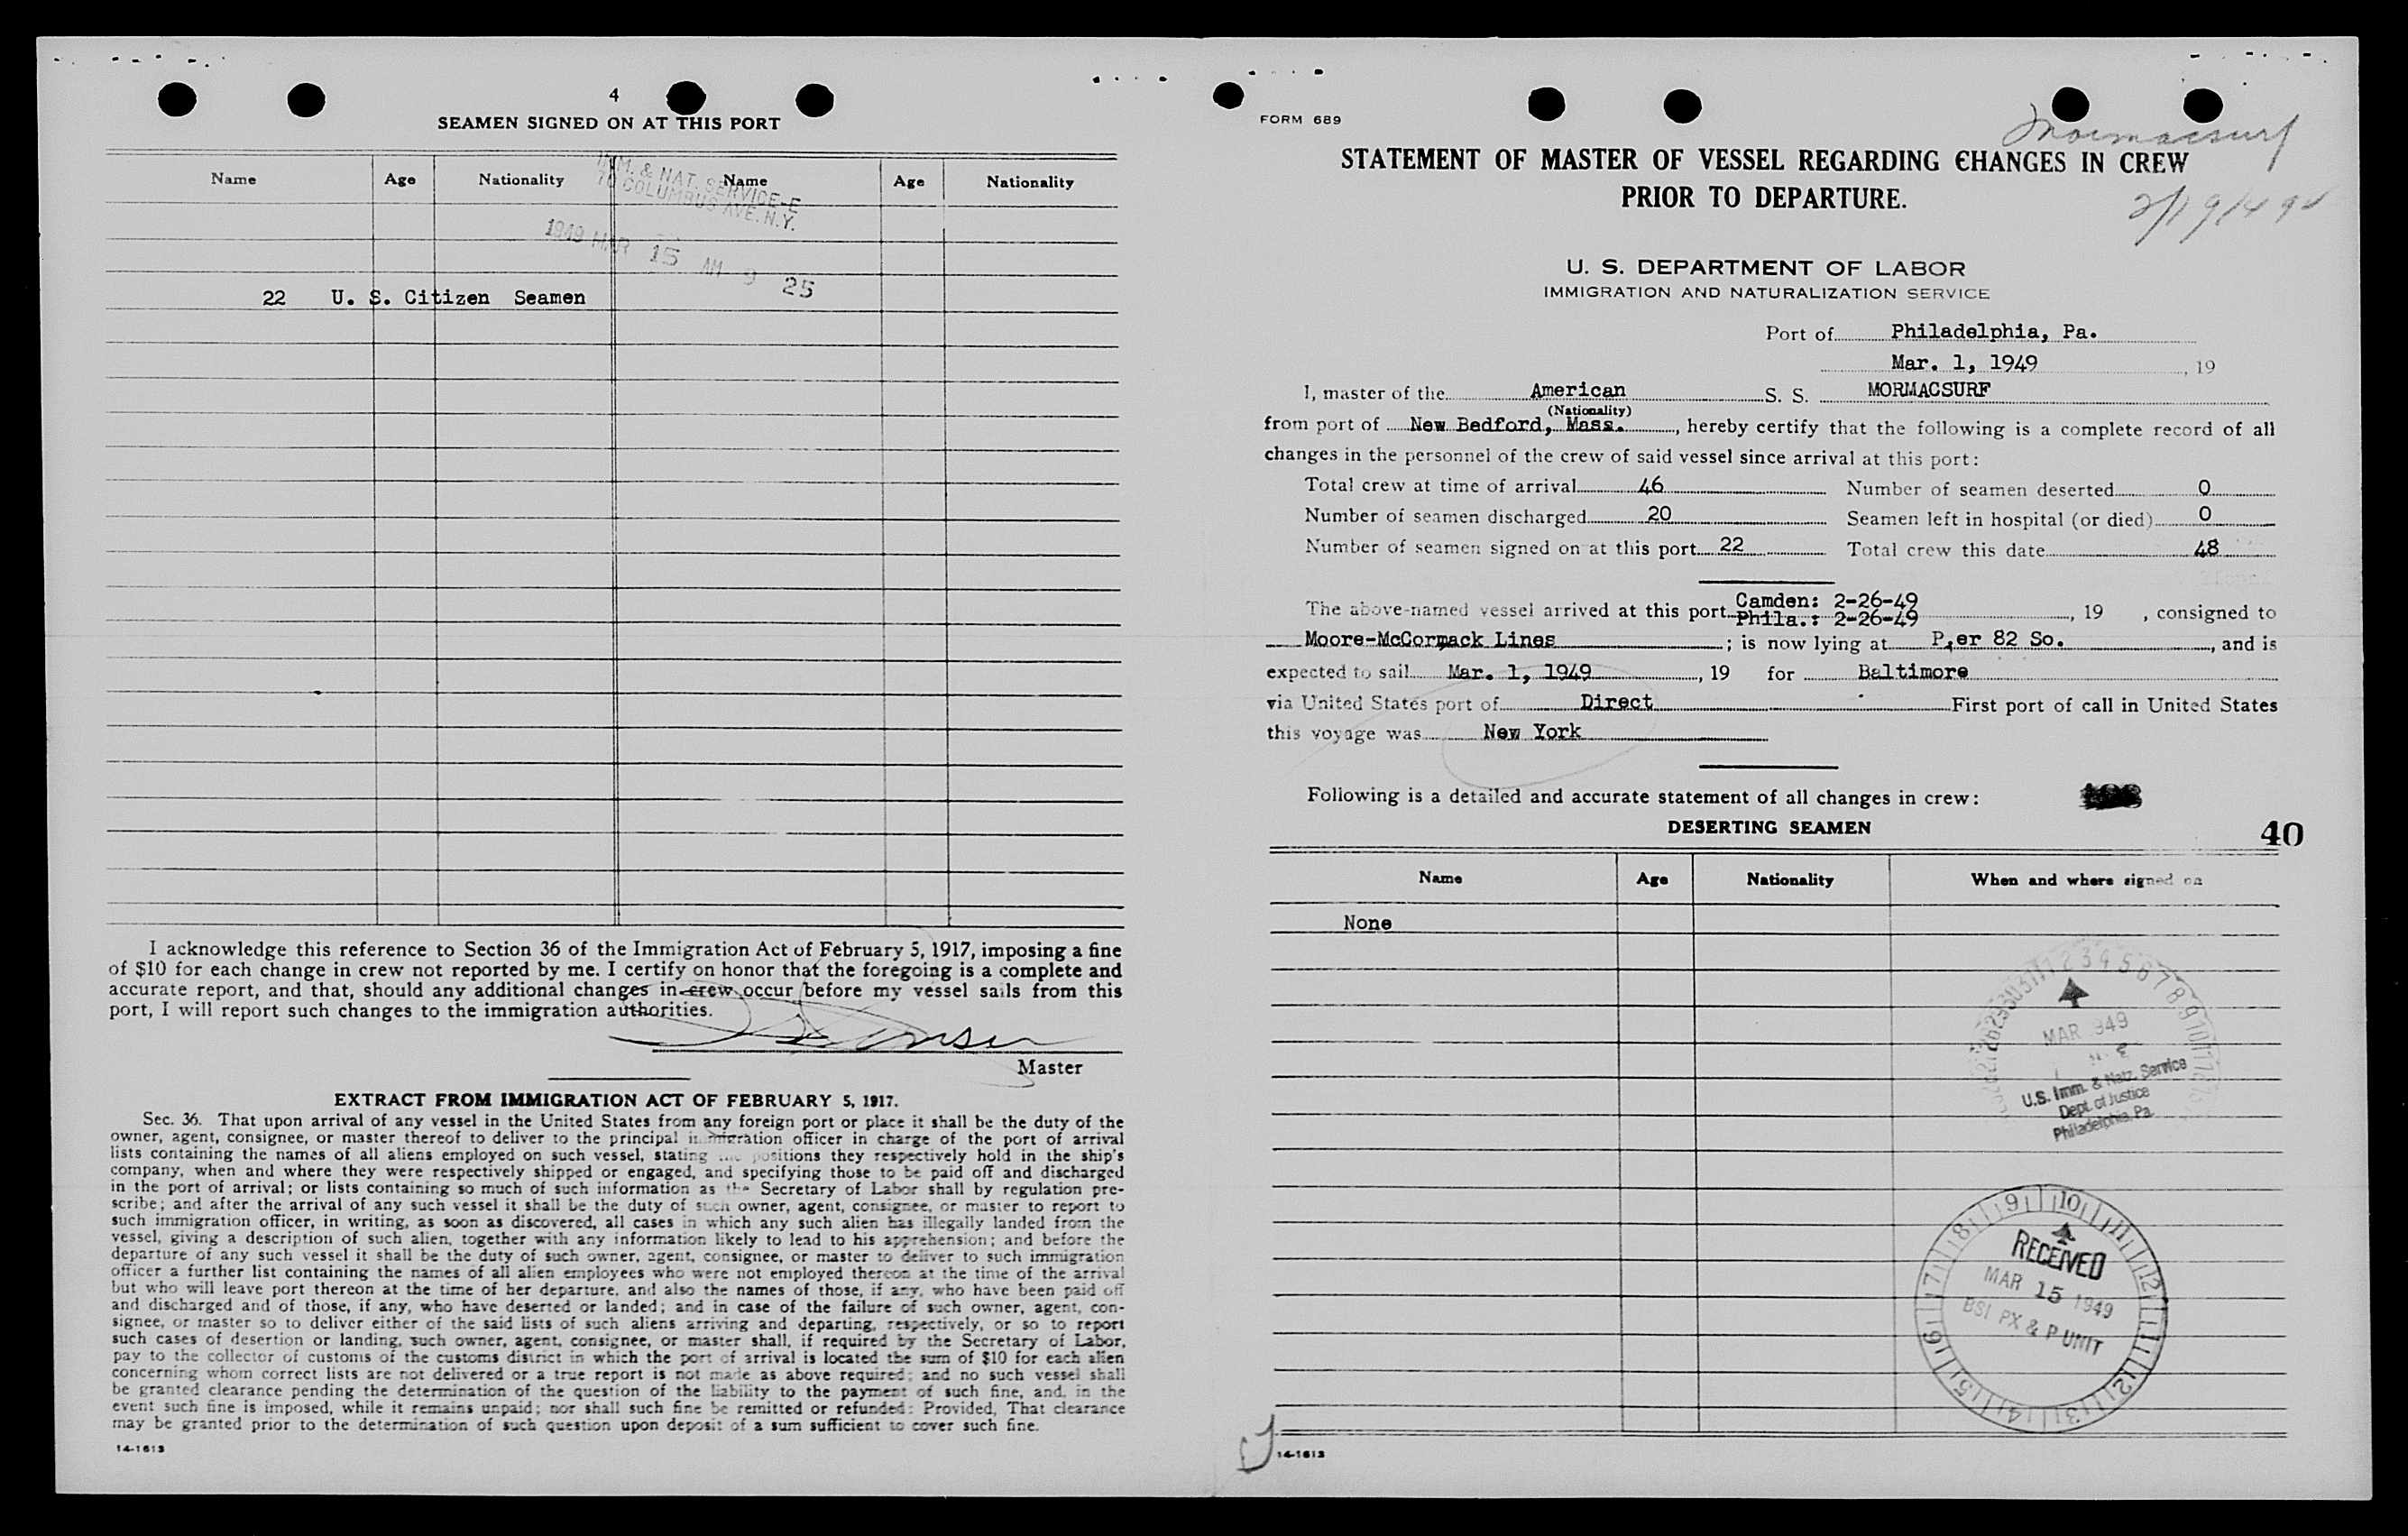 4
SEAMEN SIGNED ON AT THIS PORT
Name Age Nationality Name Age Nationality
IMM. & NAT. SERVICE-E
70 COLUMBUS AVE. N.Y.
1949 MAR 15 AM 9 25
22 U. S. Citizen Seamen
I acknowledge this reference to Section 36 of the Immigration Act of February 5, 1917, imposing a fine
of $10 for each change in crew not reported by me. I certify on honor that the foregoing is a complete and
accurate report, and that, should any additional changes in crew occur before my vessel sails from this
port, I will report such changes to the immigration authorities.
Master
EXTRACT FROM IMMIGRATION ACT OF FEBRUARY 5, 1917.
Sec. 36. That upon arrival of any vessel in the United States from any foreign port or place it shall be the duty of the
owner, agent, consignee, or master thereof to deliver to the principal immigration officer in charge of the port of arrival
lists containing the names of all aliens employed on such vessel, stating the positions they respectively hold in the ship's
company, when and where they were respectively shipped or engaged, and specifying those to be paid off and discharged
in the port of arrival; or lists containing so much of such information as the Secretary of Labor shall by regulation pre-
scribe; and after the arrival of any such vessel it shall be the duty of such owner, agent, consignee, or master to report to
such immigration officer, in writing, as soon as discovered, all cases in which any such alien has illegally landed from the
vessel, giving a description of such alien, together with any information likely to lead to his apprehension; and before the
departure of any such vessel it shall be the duty of such owner, agent, consignee, or master to deliver to such immigration
officer a further list containing the names of all alien employees who were not employed thereon at the time of the arrival
but who will leave port thereon at the time of her departure, and also the names of those, if any, who have been paid off
and discharged and of those, if any, who have deserted or landed; and in case of the failure of such owner, agent, con-
signee, or master so to deliver either of the said lists of such aliens arriving and departing, respectively, or so to report
such cases of desertion or landing, such owner, agent, consignee, or master shall, if required by the Secretary of Labor,
pay to the collector of customs of the customs district in which the port of arrival is located the sum of $10 for each alien
concerning whom correct lists are not delivered or a true report is not made as above required; and no such vessel shall
be granted clearance pending the determination of the question of the liability to the payment of such fine, and, in the
event such fine is imposed, while it remains unpaid; nor shall such fine be remitted or refunded: Provided, That clearance
may be granted prior to the determination of such question upon deposit of a sum sufficient to cover such fine.
14-1613
FORM 689
Mormacsurf
STATEMENT OF MASTER OF VESSEL REGARDING CHANGES IN CREW
PRIOR TO DEPARTURE.
U. S. DEPARTMENT OF LABOR
IMMIGRATION AND NATURALIZATION SERVICE
Port of Philadelphia, Pa.
Mar. 1, 1949, 19
I, master of the American S. S. MORMACSURF
(Nationality)
from port of New Bedford, Mass., hereby certify that the following is a complete record of all
changes in the personnel of the crew of said vessel since arrival at this port:
Total crew at time of arrival 46 Number of seamen deserted 0
Number of seamen discharged 20 Seamen left in hospital (or died) 0
Number of seamen signed on at this port 22 Total crew this date 48
Camden: 2-26-49
The above-named vessel arrived at this port Phila.: 2-26-49, 19 , consigned to
Moore-McCormack Lines; is now lying at P,er 82 So., and is
expected to sail Mar. 1, 1949, 19 for Baltimore
via United States port of Direct First port of call in United States
this voyage was New York
Following is a detailed and accurate statement of all changes in crew:
DESERTING SEAMEN
40
Name Age Nationality When and where signed on
None
MAR 949
U.S. Imm. & Natz. Service
Dept. of Justice
Philadelphia, Pa.
RECEIVED
MAR 15 1949
BSI PX & P UNIT
14-1613